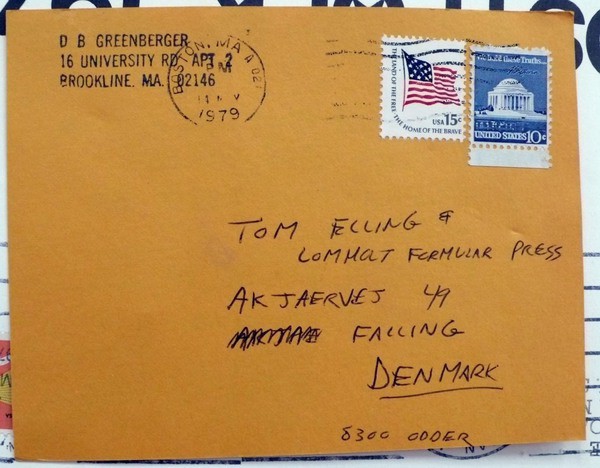 D B GREENBERGER
16 UNIVERSITY RD. APT 2
BROOKLINE. MA. 02146
BOSTON, MA
PM
1979
THE LAND OF THE FREE, THE HOME OF THE BRAVE
USA 15c
We hold these Truths...
UNITED STATES 10c
TOM ELLING &
LOMHOLT FORMULAR PRESS
AKJAERVEJ 49
FALLING
DENMARK
8300 ODDER